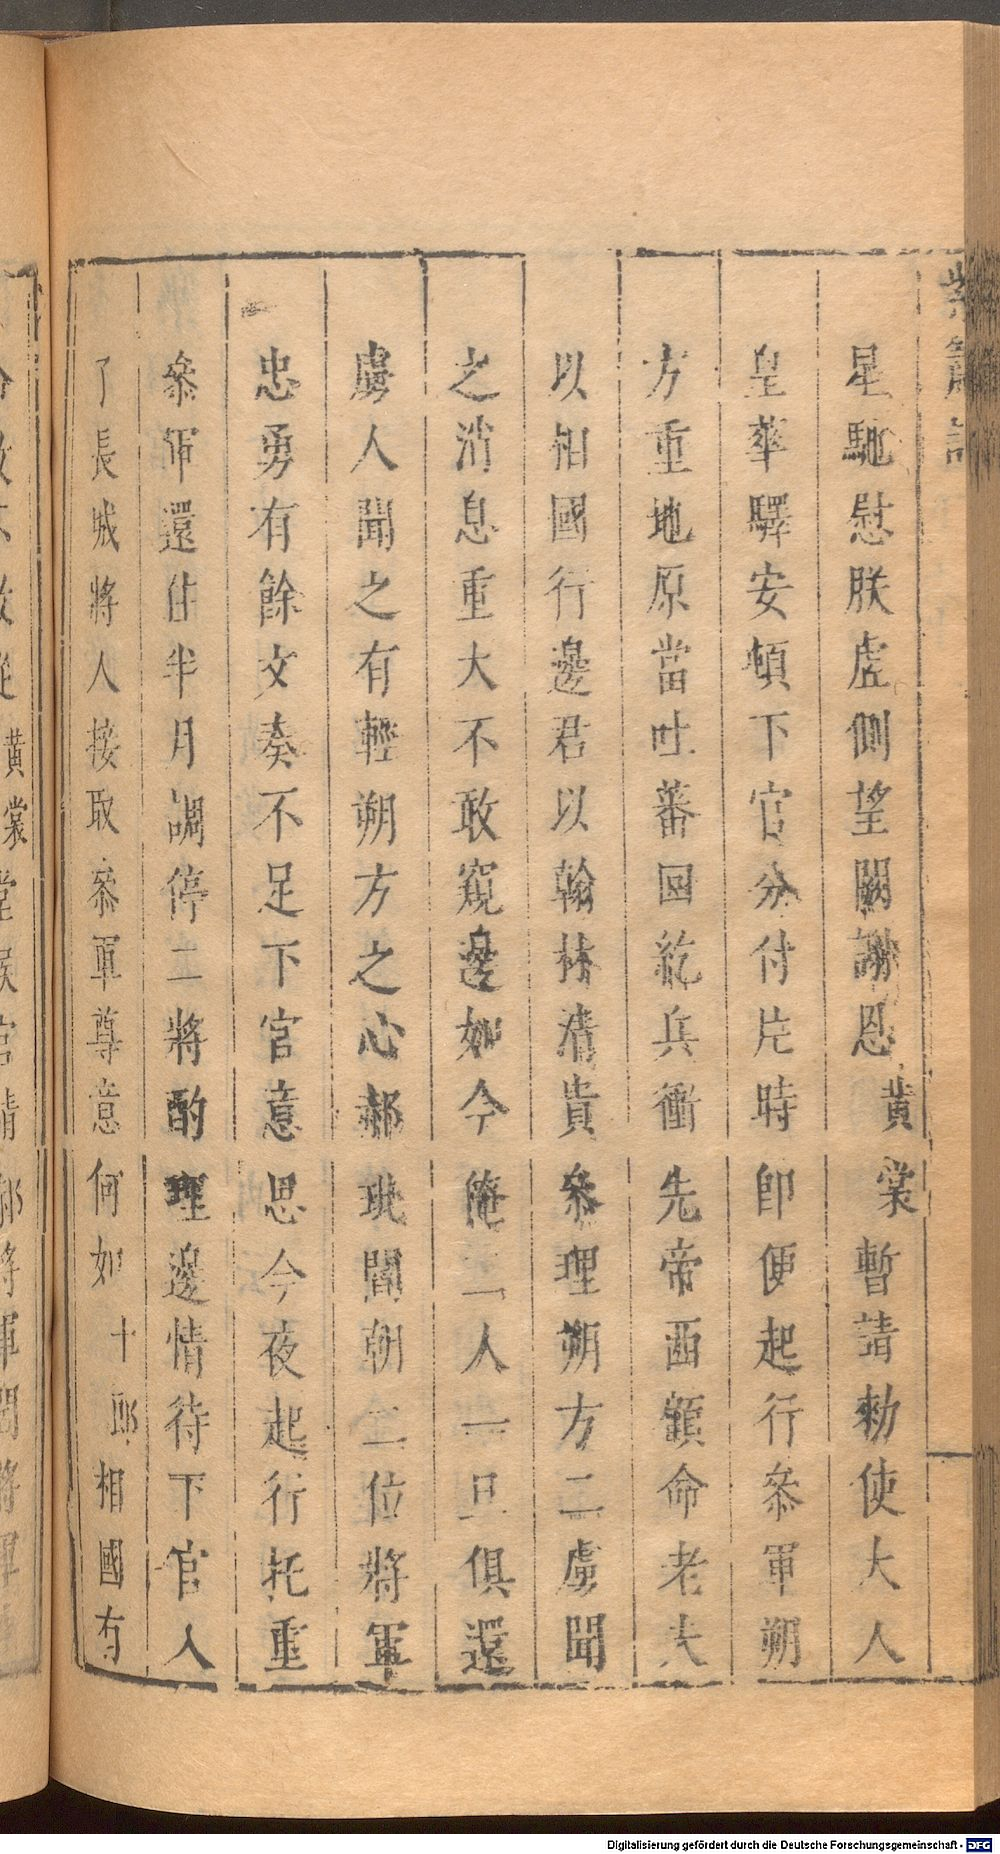 紫簫記
星馳慰朕虛側望闕謝恩黃裳暫請勅使大人
皇華驛安頓下官分付片時卽便起行叅軍朔
方重地原當吐蕃囬紇兵衝先帝西顧命老夫
以相國行邊君以翰林清貴叅理朔方二虜聞
之消息重大不敢窺邊如今俺二人一旦俱還
虜人聞之有輕朔方之心郝玼閻朝二位將軍
忠勇有餘文奏不足下官意思今夜起行托重
叅軍還住半月調停二將酌理邊情待下官入
了長城將人接取叅軍尊意何如十郎相國有
黃裳堂候官請郝將軍閻將軍
Digitalisierung gefördert durch die Deutsche Forschungsgemeinschaft - DFG